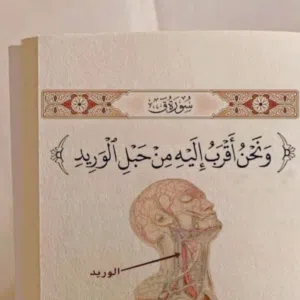 سُورَةُ ق
وَنَحْنُ أَقْرَبُ إِلَيْهِ مِنْ حَبْلِ الْوَرِيدِ
الوريد